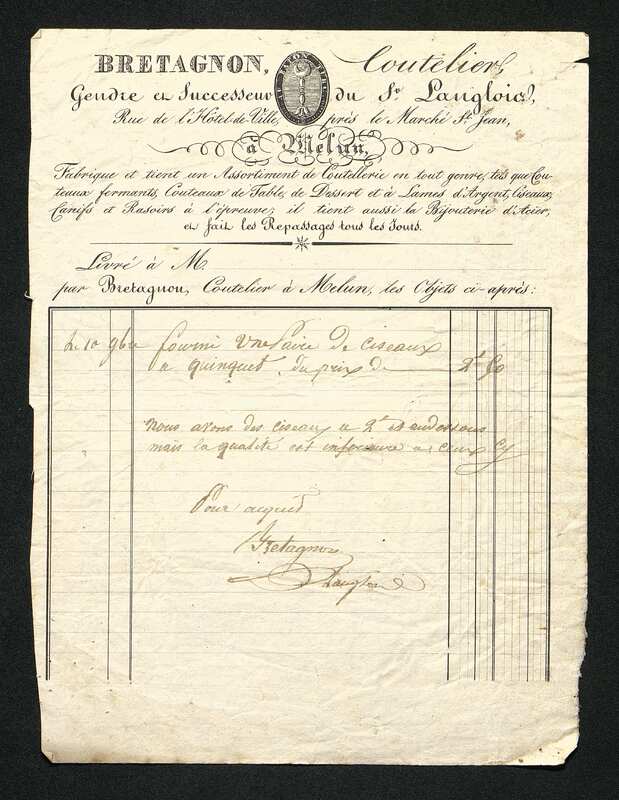 BRETAGNON, Coutelier,
Gendre et Successeur du Sr. Langlois,
Rue de l'Hôtel de Ville, près le Marché St. Jean,
à Melun,
Fabrique et tient un Assortiment de Coutellerie en tout genre, tels que Cou-
teaux fermants, Couteaux de Table, de Dessert et à Lames d'Argent, Ciseaux,
Canifs et Rasoirs à l'épreuve; il tient aussi la Bijouterie d'Acier,
et fait les Repassages tous les Jours.
Livré à M.
par Bretagnon, Coutelier à Melun, les Objets ci-après:
Le 10 9bre fourni une paire de ciseaux
a quinquet, du prix de 2f 50
nous avons des ciseaux a 2f et audessous
mais la qualité est inférieure a ceux cy
Pour acquit
Bretagnon
Langlois